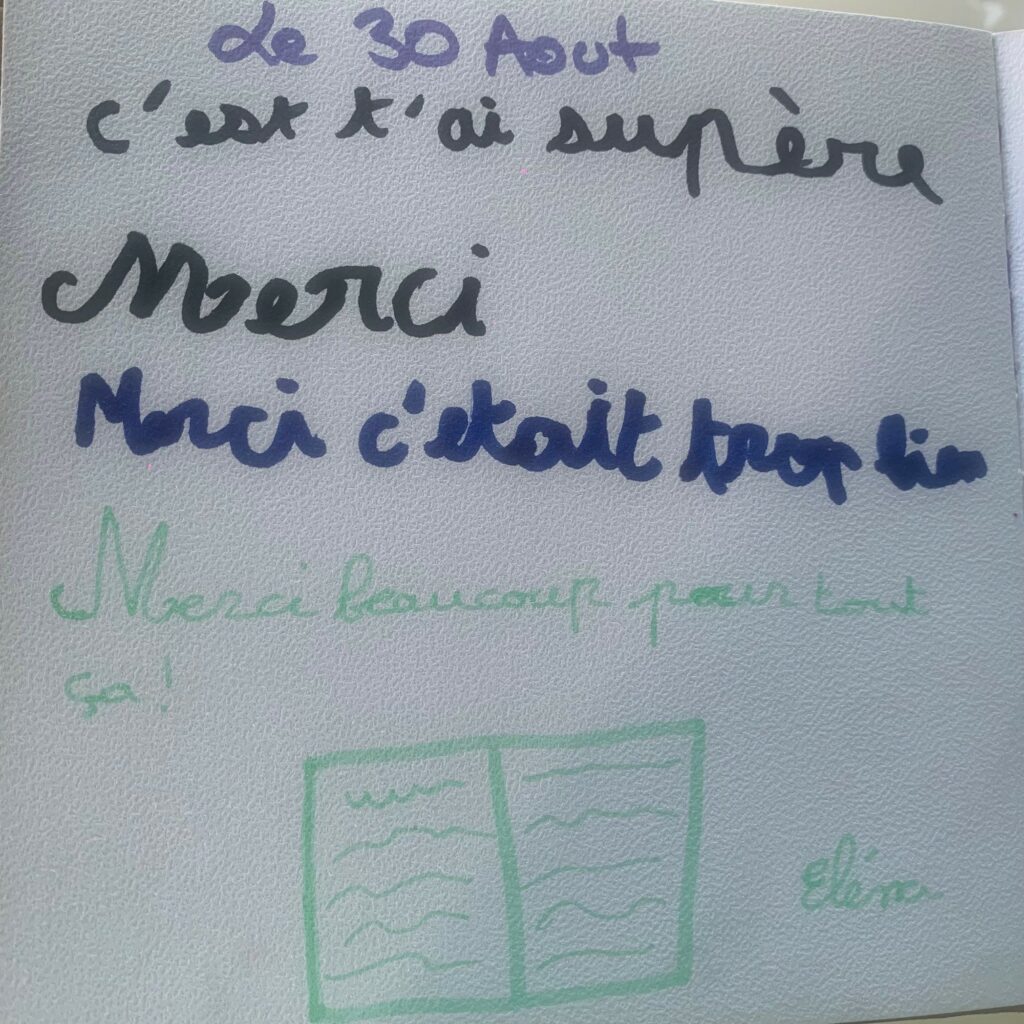 Le 30 Aout
c'est t'ai supère
Merci
Merci c'était trop bien
Merci beaucoup pour tout
ça!
Eléna